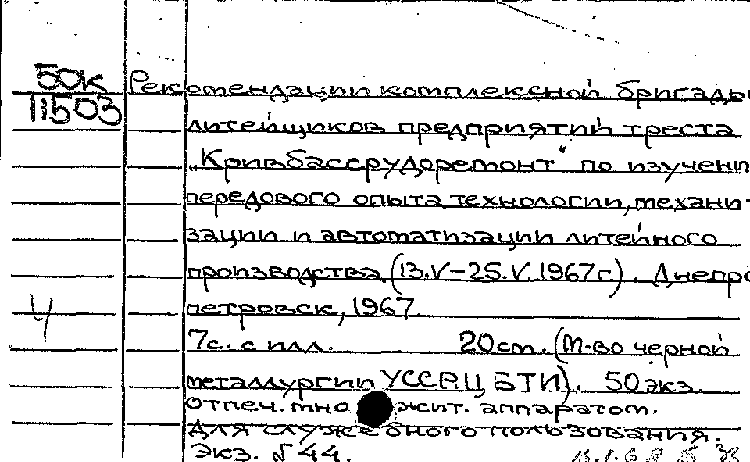 50к
11503
Рекомендации комплексной бригады
литейщиков предприятий треста
„Кривбассрудоремонт" по изучени
передового опыта технологии, механи-
зации и автоматизации литейного
производства (13.V–25.V.1967г.). Днепро
петровск, 1967.
Ч
7с. с илл. 20см. (М-во черной
металлургии УССР. ЦБТИ). 50 экз.
Отпеч. мно жит. аппаратом.
Для служебного пользования.
Экз. №44.